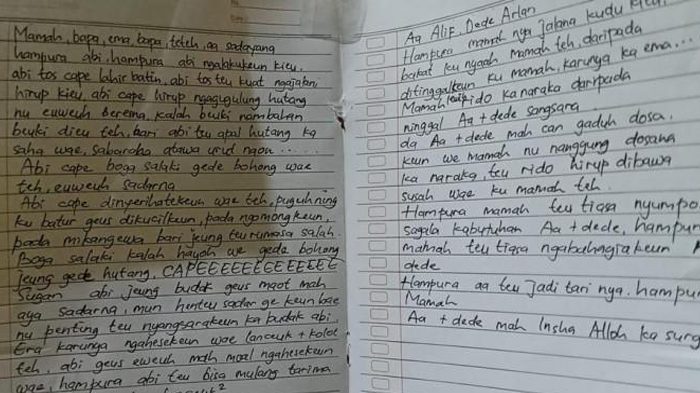 Mamah, bapa, ema, bapa, teteh, aa sadayana
hampura abi, hampura abi ngalakukeun kieu.
abi tos cape lahir batin, abi tos teu kuat ngajalan,
hirup kieu, abi cape hirup ngagugulung hutang
nu euweuh berema, kalah beuki nambahan
beuki dieu teh, bari abi tu apal hutang ka
saha wae, sabaraha atawa urut naon ......
Abi cape boga salaki gede bohong wae
teh, euweuh sadarna
Abi cape dinyerihatekeun wae teh, puguh ning
ku batur geus dikucilkeun, pada ngomongkeun,
pada mikangewa bari jeung teu rumasa salah.
Boga salaki kalah hayoh we gede bohong
jeung gede hutang, CAPEEEEEEEEEEEEE
Sugan abi jeung budak geus maot mah
aya sadarna, mun henteu sadar ge keun bae
nu penting teu nyangsarakeun ka budak abi,
Era karunya ngahesekeun wae lanceuk + kolot
teh, abi geus euweuh mah moal ngahesekeun
wae, hampura abi teu bisa mulang tarima
Aa Alif, Dede Arlan
Hampura mamah nya jalana kudu kieu
bakat ku nyaah mamah teh, daripada
ditinggalkeun ku mamah, karunya ka ema...
Mamah rido ka naraka daripada
ninggal Aa + dede sangsara
da Aa + dede mah can gaduh dosa.
keun we mamah nu nanggung dosana
ka naraka, teu rido hirup dibawa
susah wae ku mamah teh.
Hampura mamah teu tiasa nyumpo
sagala kabutuhan Aa + dede, hampur
mamah teu tiasa ngabahagiakeun
dede
Hampura aa teu jadi tari nya. hampu
Mamah
Aa + dede mah Insha Alloh ka surg